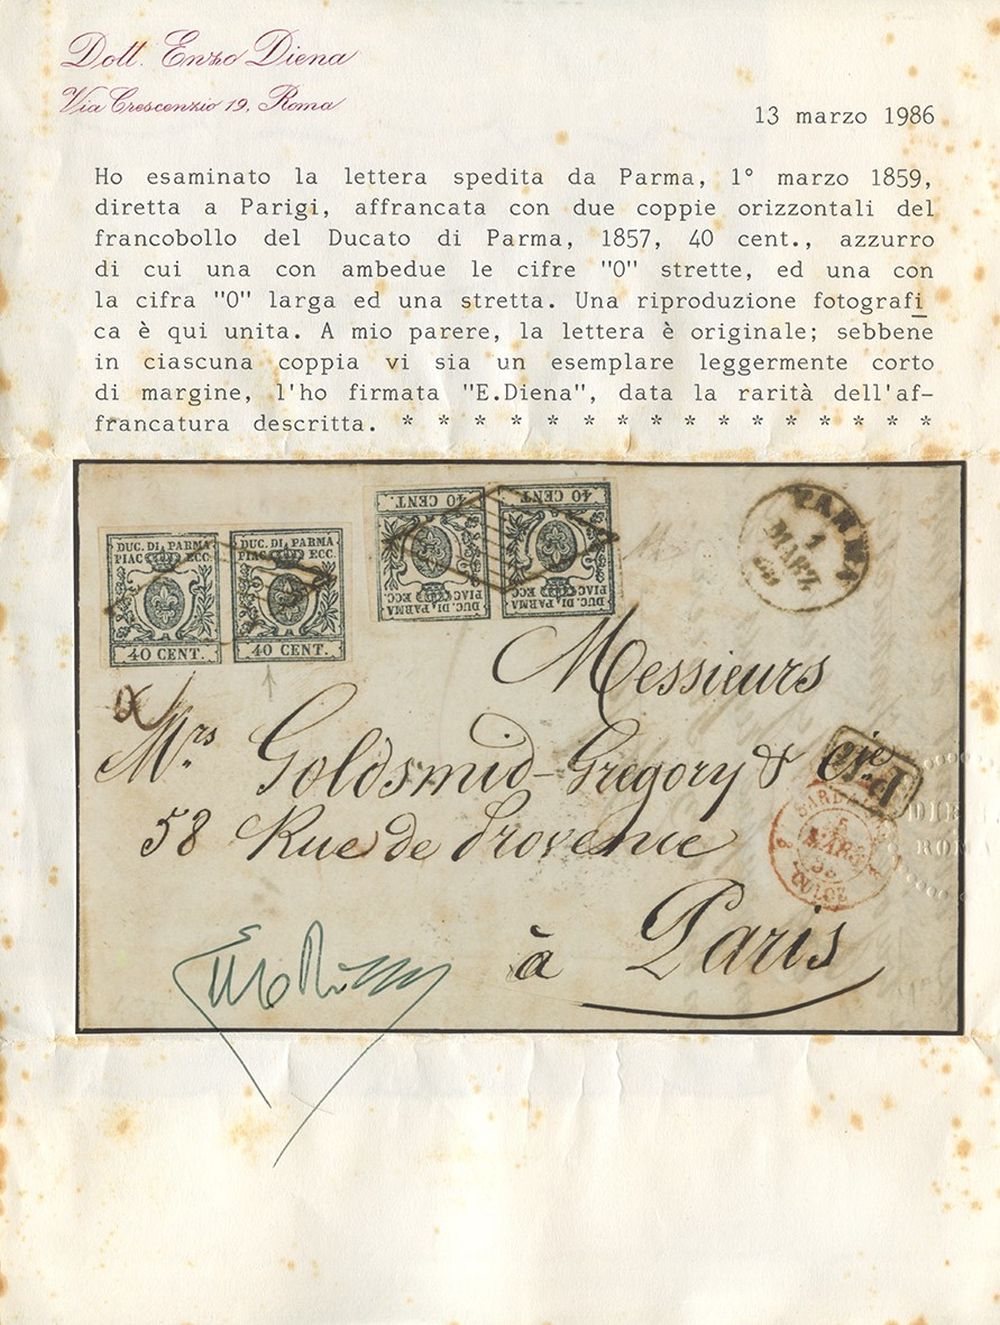 Dott. Enzo Diena
Via Crescenzio 19, Roma
13 marzo 1986
Ho esaminato la lettera spedita da Parma, 1° marzo 1859,
diretta a Parigi, affrancata con due coppie orizzontali del
francobollo del Ducato di Parma, 1857, 40 cent., azzurro
di cui una con ambedue le cifre "0" strette, ed una con
la cifra "0" larga ed una stretta. Una riproduzione fotografi
ca è qui unita. A mio parere, la lettera è originale; sebbene
in ciascuna coppia vi sia un esemplare leggermente corto
di margine, l'ho firmata "E.Diena", data la rarità dell'af-
francatura descritta. * * * * * * * * * * * * * * *
40 CENT. 40 CENT.
DUC. DI PARMA PIAC ECC. DUC. DI PARMA PIAC ECC.
PARMA
1
MARZ
DUC. DI PARMA DUC. DI PARMA
PIAC ECC. PIAC ECC.
40 CENT. 40 CENT.
Messieurs
Mrs. Goldsmid-Gregory & Cie
58 Rue de Provence
à Paris
P.D.
5
MARS
CULOZ
DIE
ROM